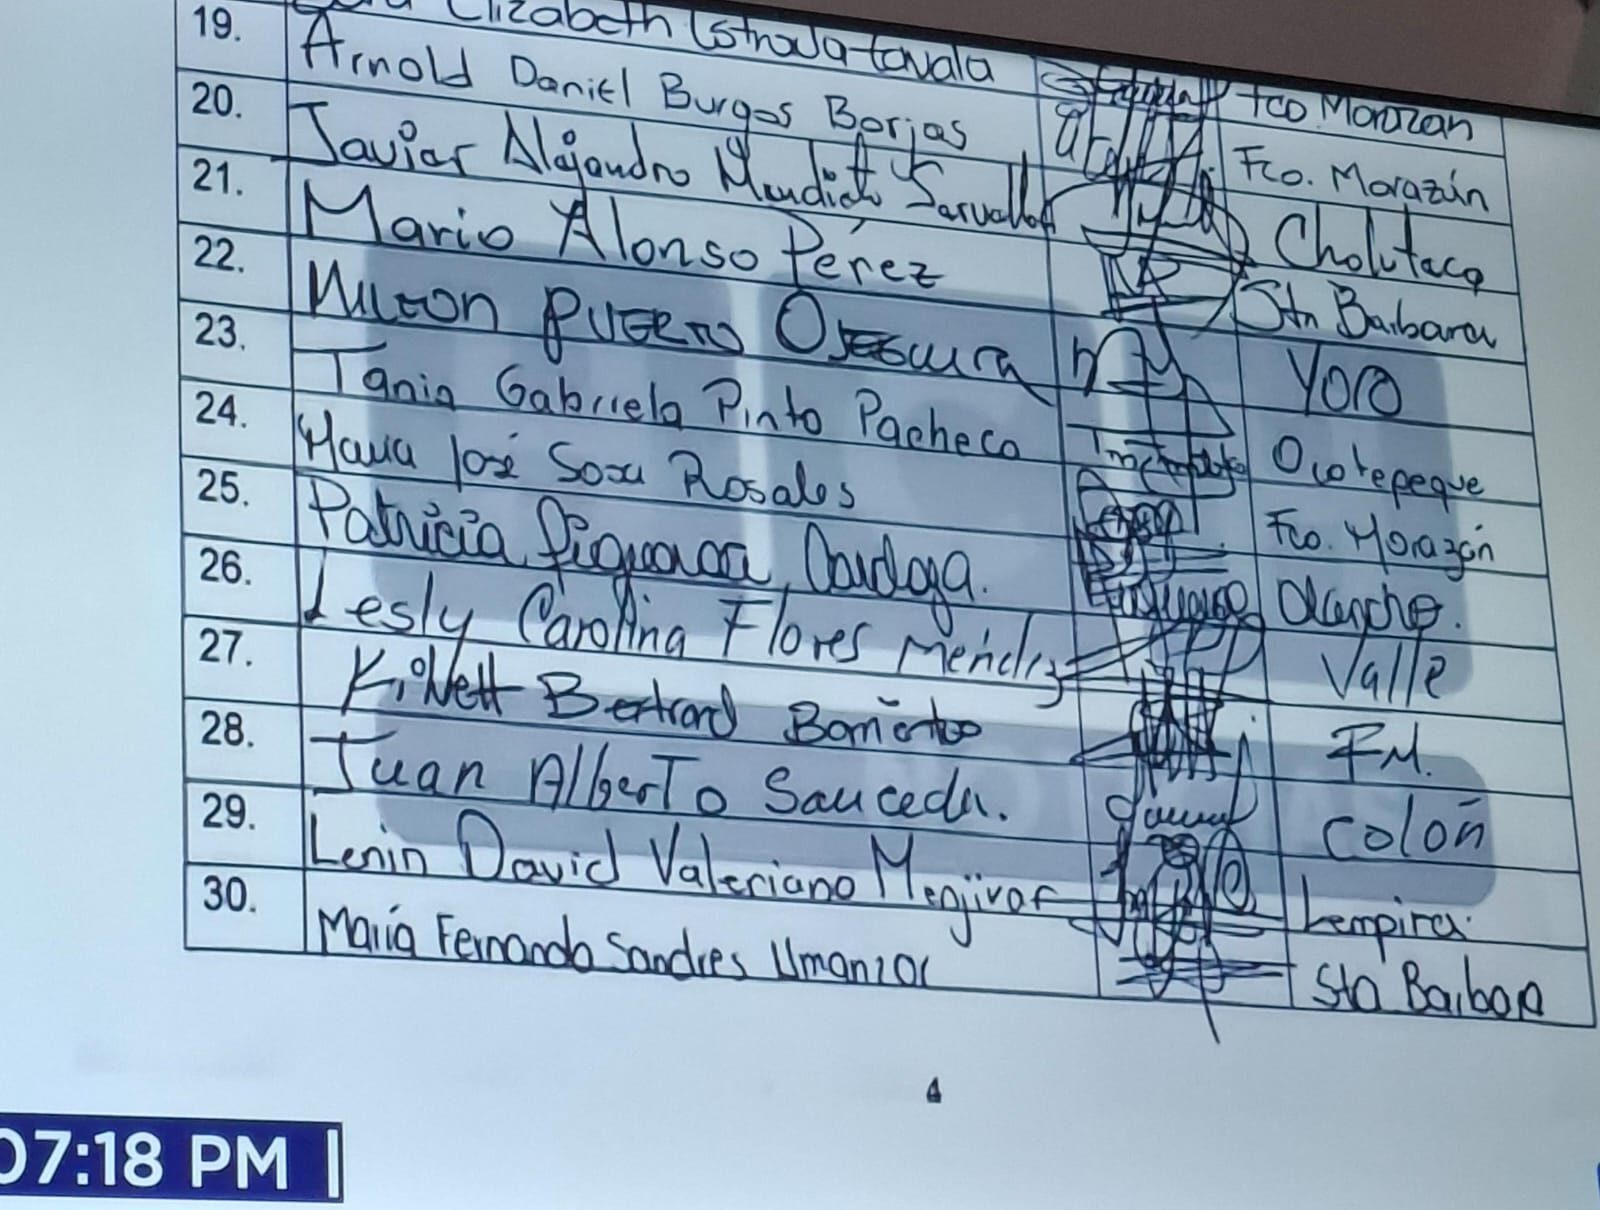 19. Elizabeth Estrada Zavala Fco. Morazan
20. Arnold Daniel Burgos Borjas Fco. Morazán
21. Javier Alejandro Choluteca
22. Mario Alonso Pérez Sta Barbara
23. Milton Puerto Oseguera Yoro
24. Tania Gabriela Pinto Pacheco Ocotepeque
25. Maria José Sosa Rosales Fco. Morazán
26. Patricia Olancho.
27. Lesly Carolina Flores Mendez Valle
28. Bertrand F.M.
29. Juan Alberto Sauceda. Colón
30. Lenin David Valeriano Menjivar Lempira
María Fernanda Sandres Umanzor Sta Barbara
4
07:18 PM